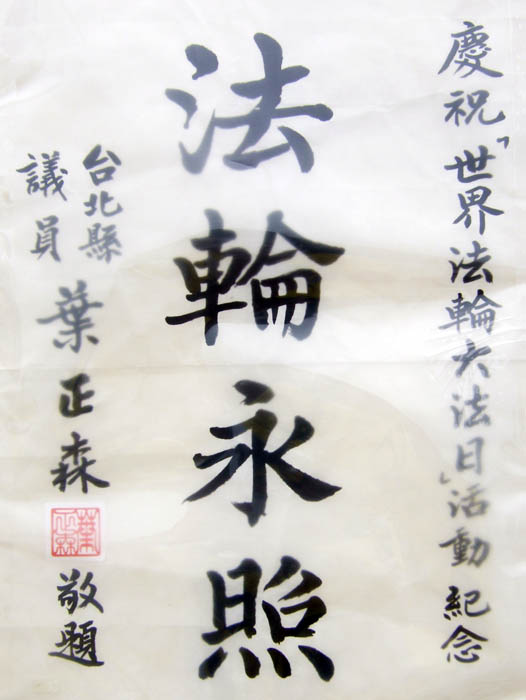 慶祝「世界法輪大法日」活動紀念
法輪永照
台北縣
議員
葉正森
葉正森
敬題